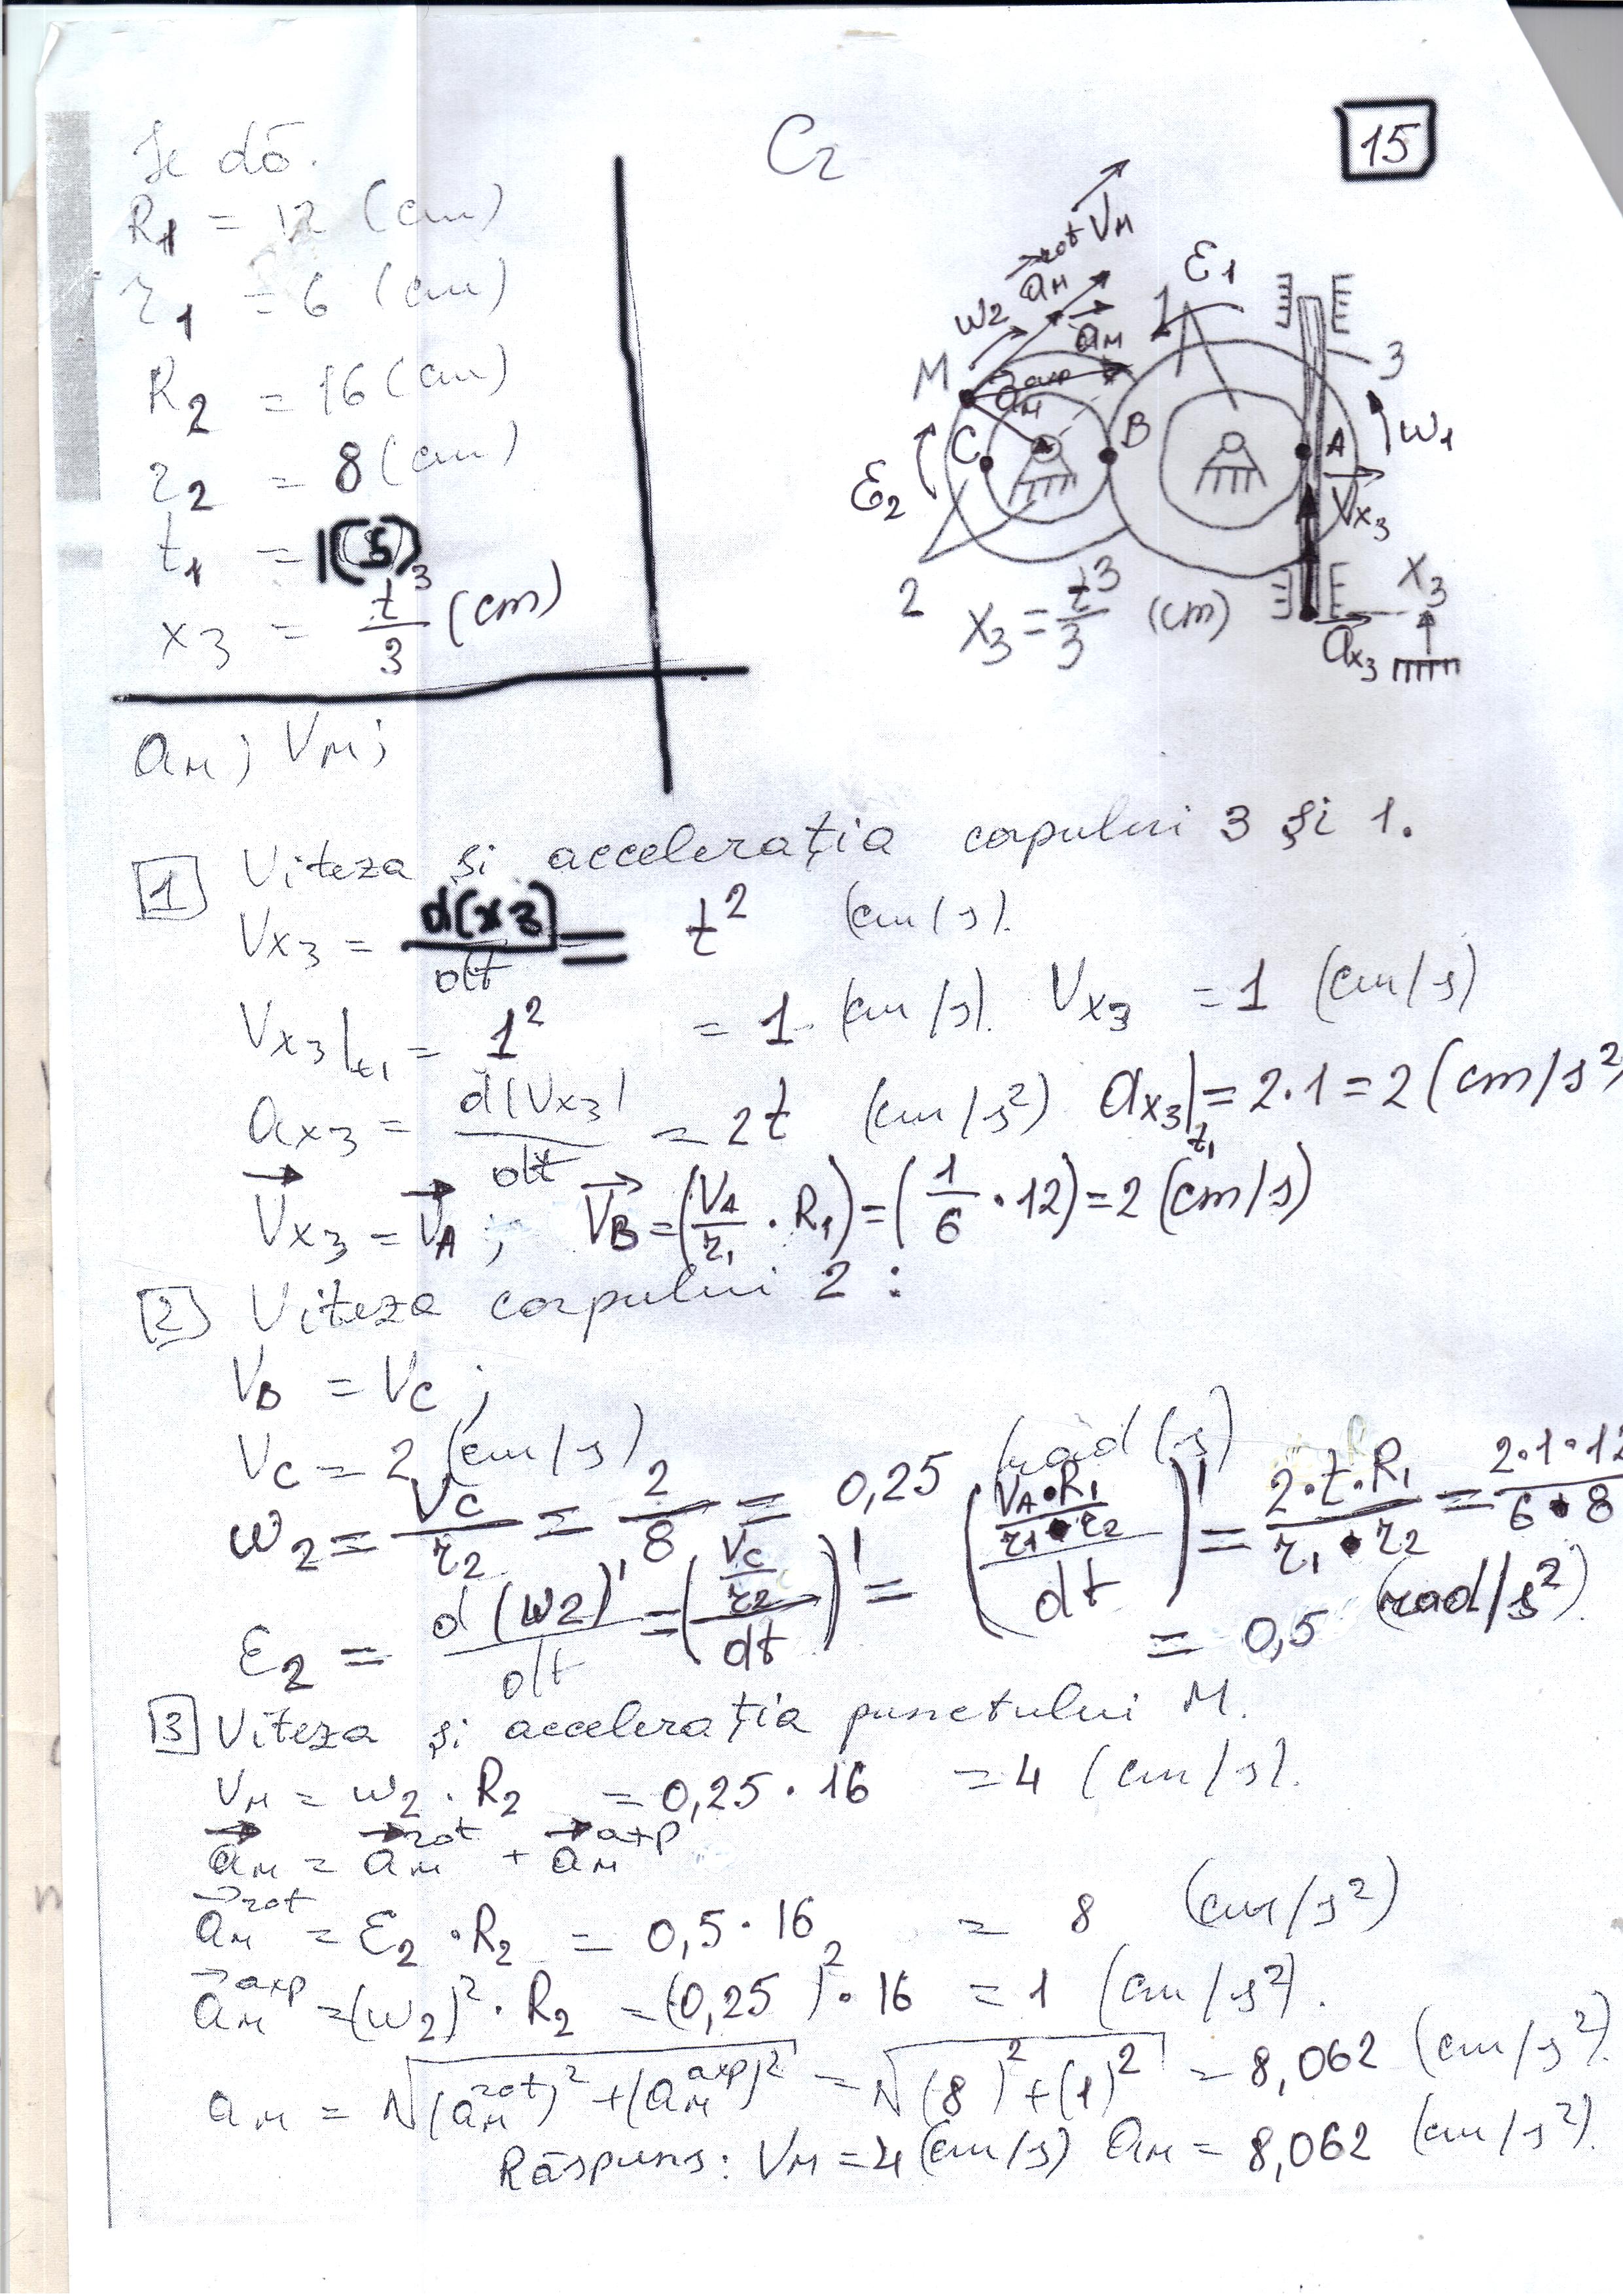 C2
15
Se dă.
R1 = 12 (cm)
r1 = 6 (cm)
R2 = 16 (cm)
r2 = 8 (cm)
t1 = 1(s)
x3 = t³/3 (cm)
aM ; VM ;
VM
aM rot
ω2
aM
aM axp
M
C
B
A
1
ε1
3
ω1
ε2
Vx3
2
x3 = t³/3 (cm)
ax3
x3
1 Viteza și accelerația corpului 3 și 1.
Vx3 = d(x3)/dt = t² (cm/s).
Vx3|t1 = 1² = 1 (cm/s). Vx3 = 1 (cm/s)
ax3 = d(Vx3)/dt = 2t (cm/s²) ax3|t1 = 2·1 = 2 (cm/s²
Vx3 = VA ; VB = (VA/r1 · R1) = (1/6 · 12) = 2 (cm/s)
2 Viteza corpului 2 :
VB = VC ;
VC = 2 (cm/s)
ω2 = VC/r2 = 2/8 = 0,25 (rad/s)
ε2 = d(ω2)'/dt = ((VC/r2)/dt)' = ((VA·R1/r1·r2)/dt)' = 2·t·R1/r1·r2 = 2·1·12/6·8
= 0,5 (rad/s²).
3 Viteza și accelerația punctului M.
VM = ω2 · R2 = 0,25 · 16 = 4 (cm/s).
aM = aM rot + aM axp
aM rot = ε2 · R2 = 0,5 · 16 = 8 (cm/s²)
aM axp = (ω2)² · R2 = (0,25)² · 16 = 1 (cm/s²).
aM = √(aM rot)² + (aM axp)² = √(8)² + (1)² = 8,062 (cm/s²).
Răspuns: VM = 4 (cm/s) aM = 8,062 (cm/s²).